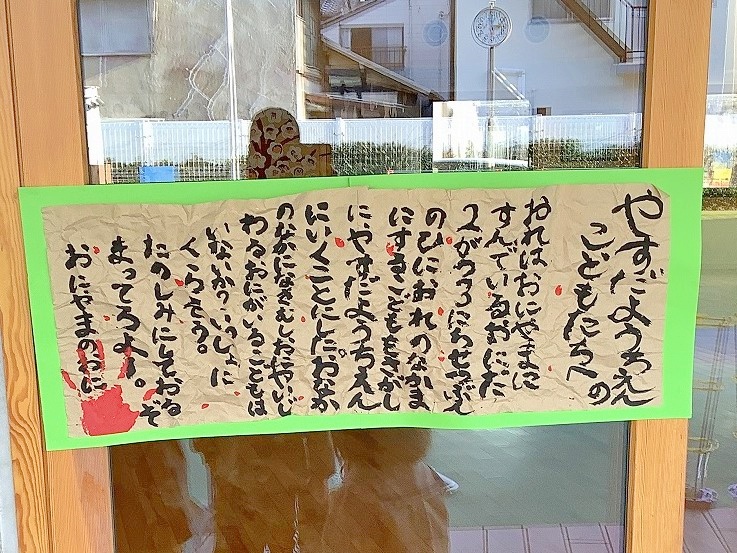 やすだようちえんの
こどもたちへ
おれはおにやまに
すんでいるおにだ
2がつ3にちせつぶん
のひにおれのなかま
にするこどもをさがし
に、やすだようちえん
にいくことにした。おなか
のなかになきむしおにやいじ
わるおにがいるこどもは
いないか?いっしょに
くらそう。
たのしみにしておるぞ
まってろよー。
おにやまのおに